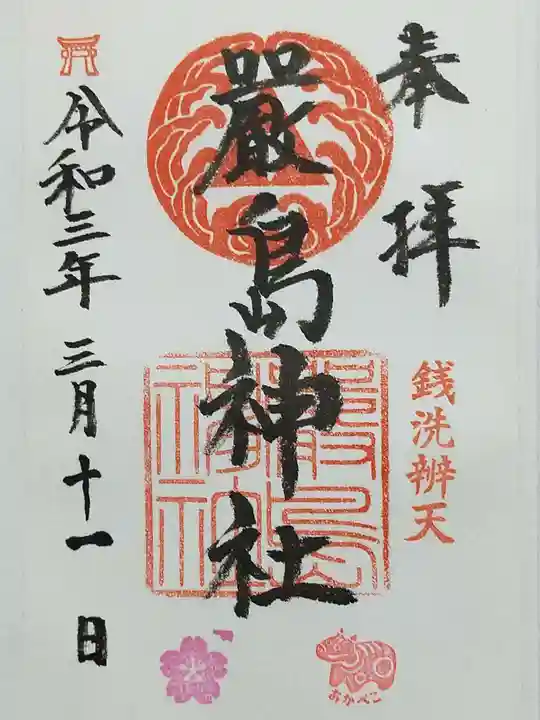 奉拝
銭洗辨天
嚴島神社
嚴島神社
令和三年 三月十一日
あかべこ